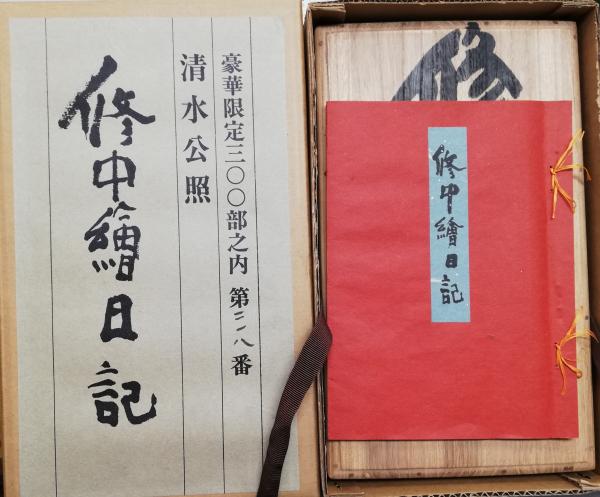 豪華限定三〇〇部之内 第 番
清水公照
修中繪日記
修
修中繪日記